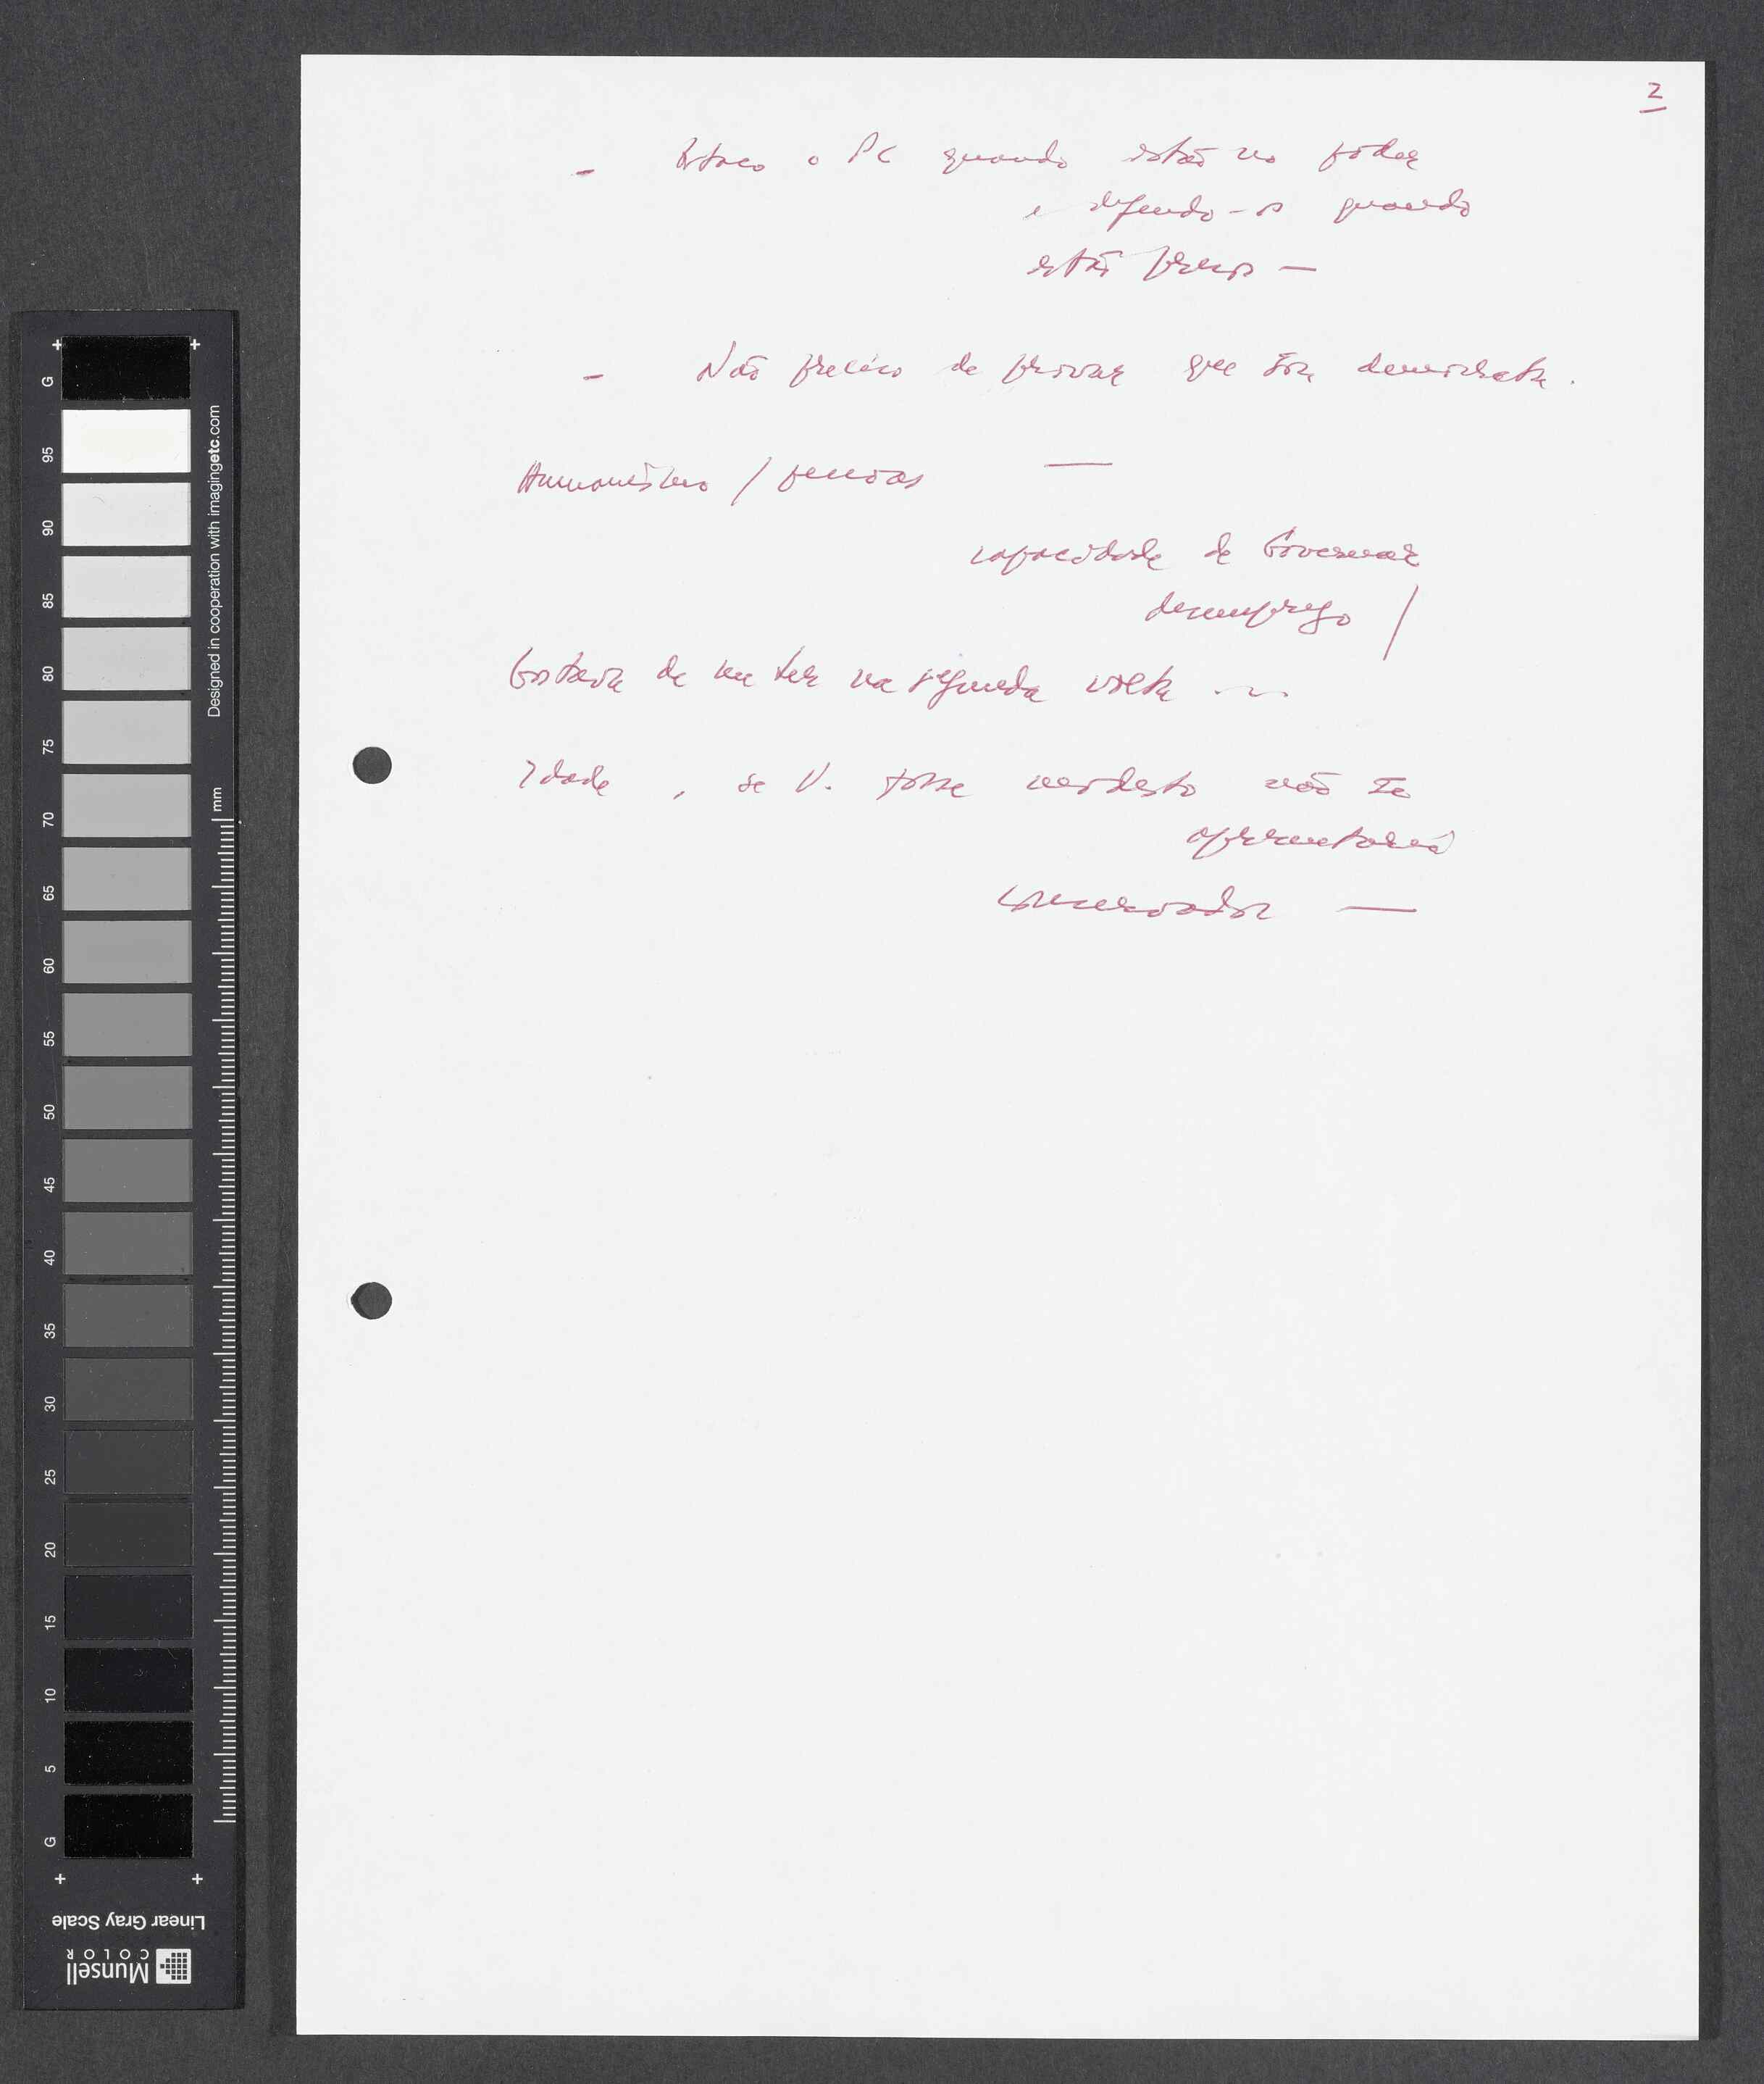 2
- Ataco o PC quando estão no poder
e defendo-os quando
estão presos —
- Não preciso de provar que sou democrata.
Humanismo / pessoas —
capacidade de Governar
desemprego /
Gostava de me ter na segunda volta
Idade, se V. fosse modesto não se
apresentaria
conservador —
G
95
90
85
80
75
70
65
60
55
50
45
40
35
30
25
20
15
10
5
G
Designed in cooperation with imagingetc.com
mm
Linear Gray Scale
Munsell
COLOR